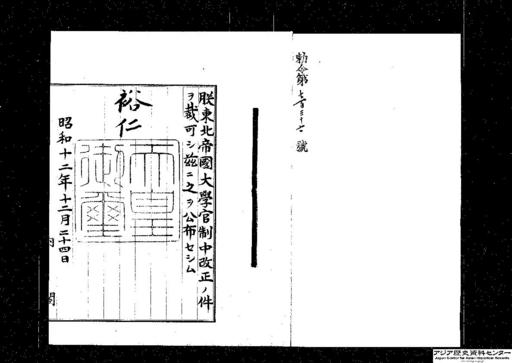 勅令第七百三十七號
朕東北帝國大學官制中改正ノ件
ヲ裁可シ茲ニ之ヲ公布セシム
裕仁
天皇御璽
昭和十二年十二月二十四日
内閣
アジア歴史資料センター
Japan Center for Asian Historical Records